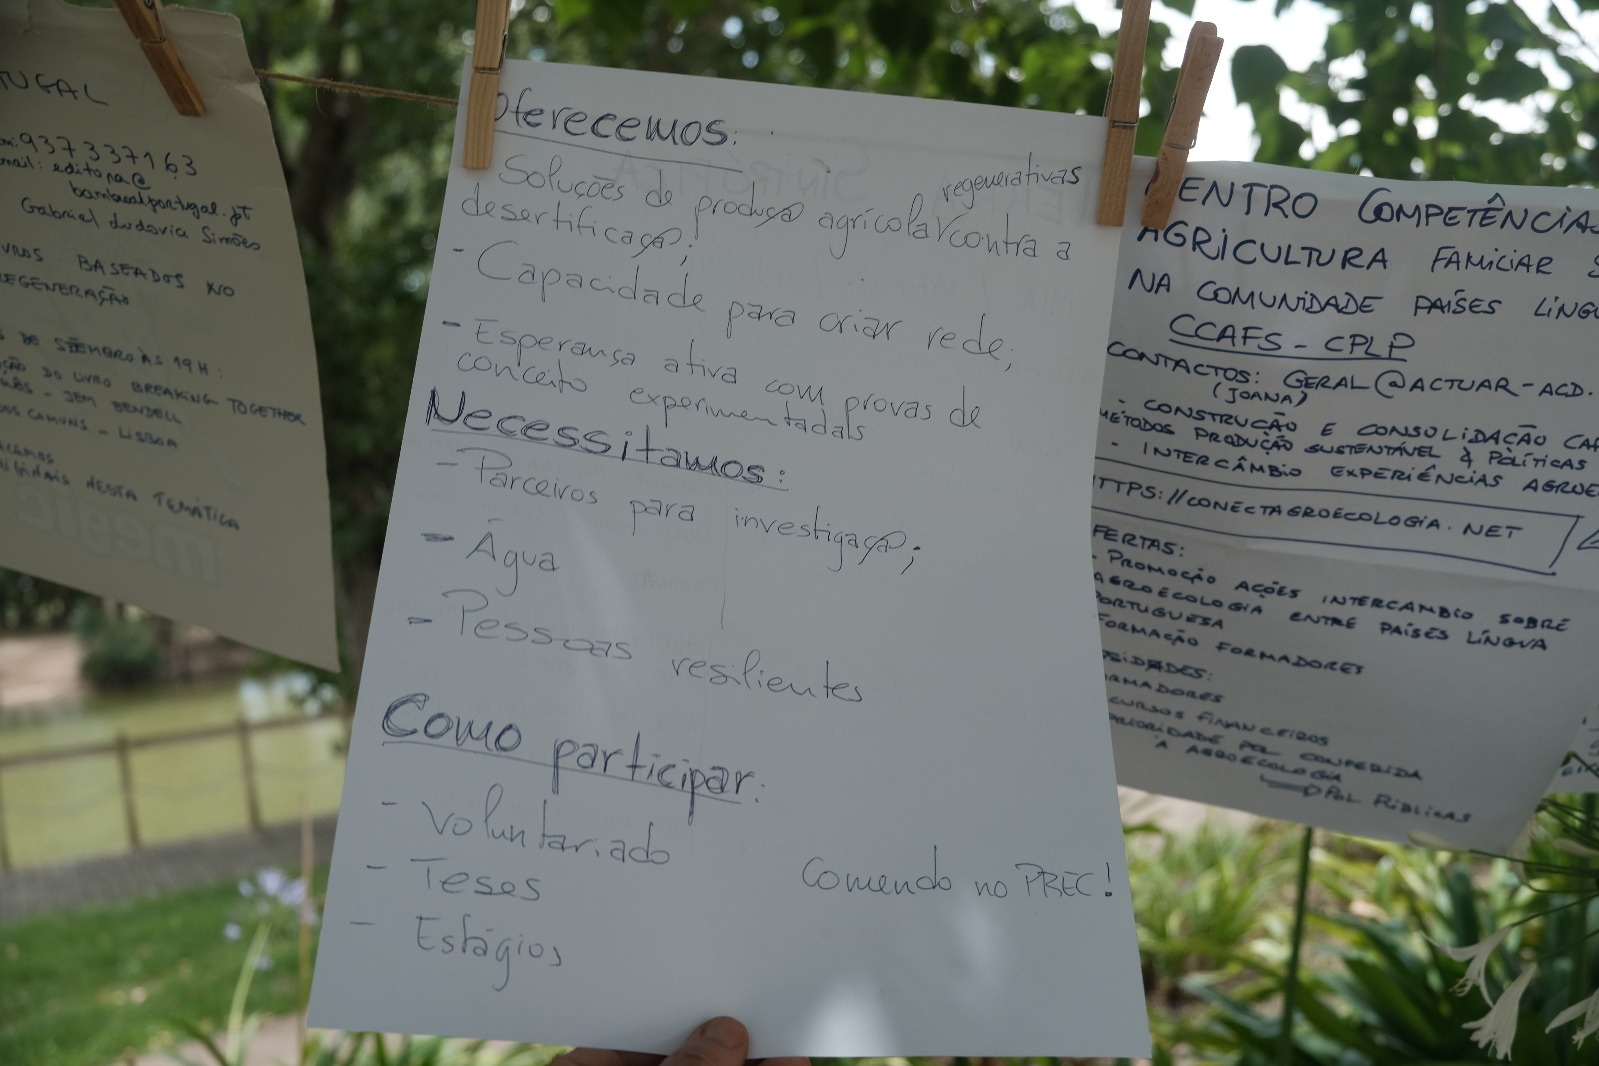 TUGAL
937337163
mail: editora@
bambualportugal.pt
Gabriel Ludovice Simões
VROS BASEADOS NO
REGENERAÇÃO
DE SETEMBRO ÀS 19H:
ÇÃO DO LIVRO BREAKING TOGETHER
JEM BENDELL
DOS COMUNS - LISBOA
NESTA TEMÁTICA
Oferecemos:
regenerativas
Soluções de produção agrícola/contra a
desertificação;
- Capacidade para criar rede;
- Esperança ativa com provas de
conceito experimentadas
Necessitamos:
- Parceiros para investigação;
- Água
- Pessoas resilientes
Como participar:
- Voluntariado
- Teses
- Estágios
Comendo no PREC!
CENTRO COMPETÊNCIAS
AGRICULTURA FAMILIAR S
NA COMUNIDADE PAÍSES LÍNGU
CCAFS - CPLP
CONTACTOS: GERAL@ACTUAR-ACD.
(JOANA)
- CONSTRUÇÃO E CONSOLIDAÇÃO CA
MÉTODOS PRODUÇÃO SUSTENTÁVEL & POLÍTICAS
- INTERCÂMBIO EXPERIÊNCIAS AGROE
HTTPS://CONECTAGROECOLOGIA.NET
FERTAS:
- PROMOÇÃO AÇÕES INTERCÂMBIO SOBRE
AGROECOLOGIA ENTRE PAÍSES LÍNGUA
PORTUGUESA
FORMAÇÃO FORMADORES
SSIDADES:
RMADORES
CURSOS FINANCEIROS
PRIORIDADE POL CONFERIDA
À AGROECOLOGIA
POL PÚBLICAS